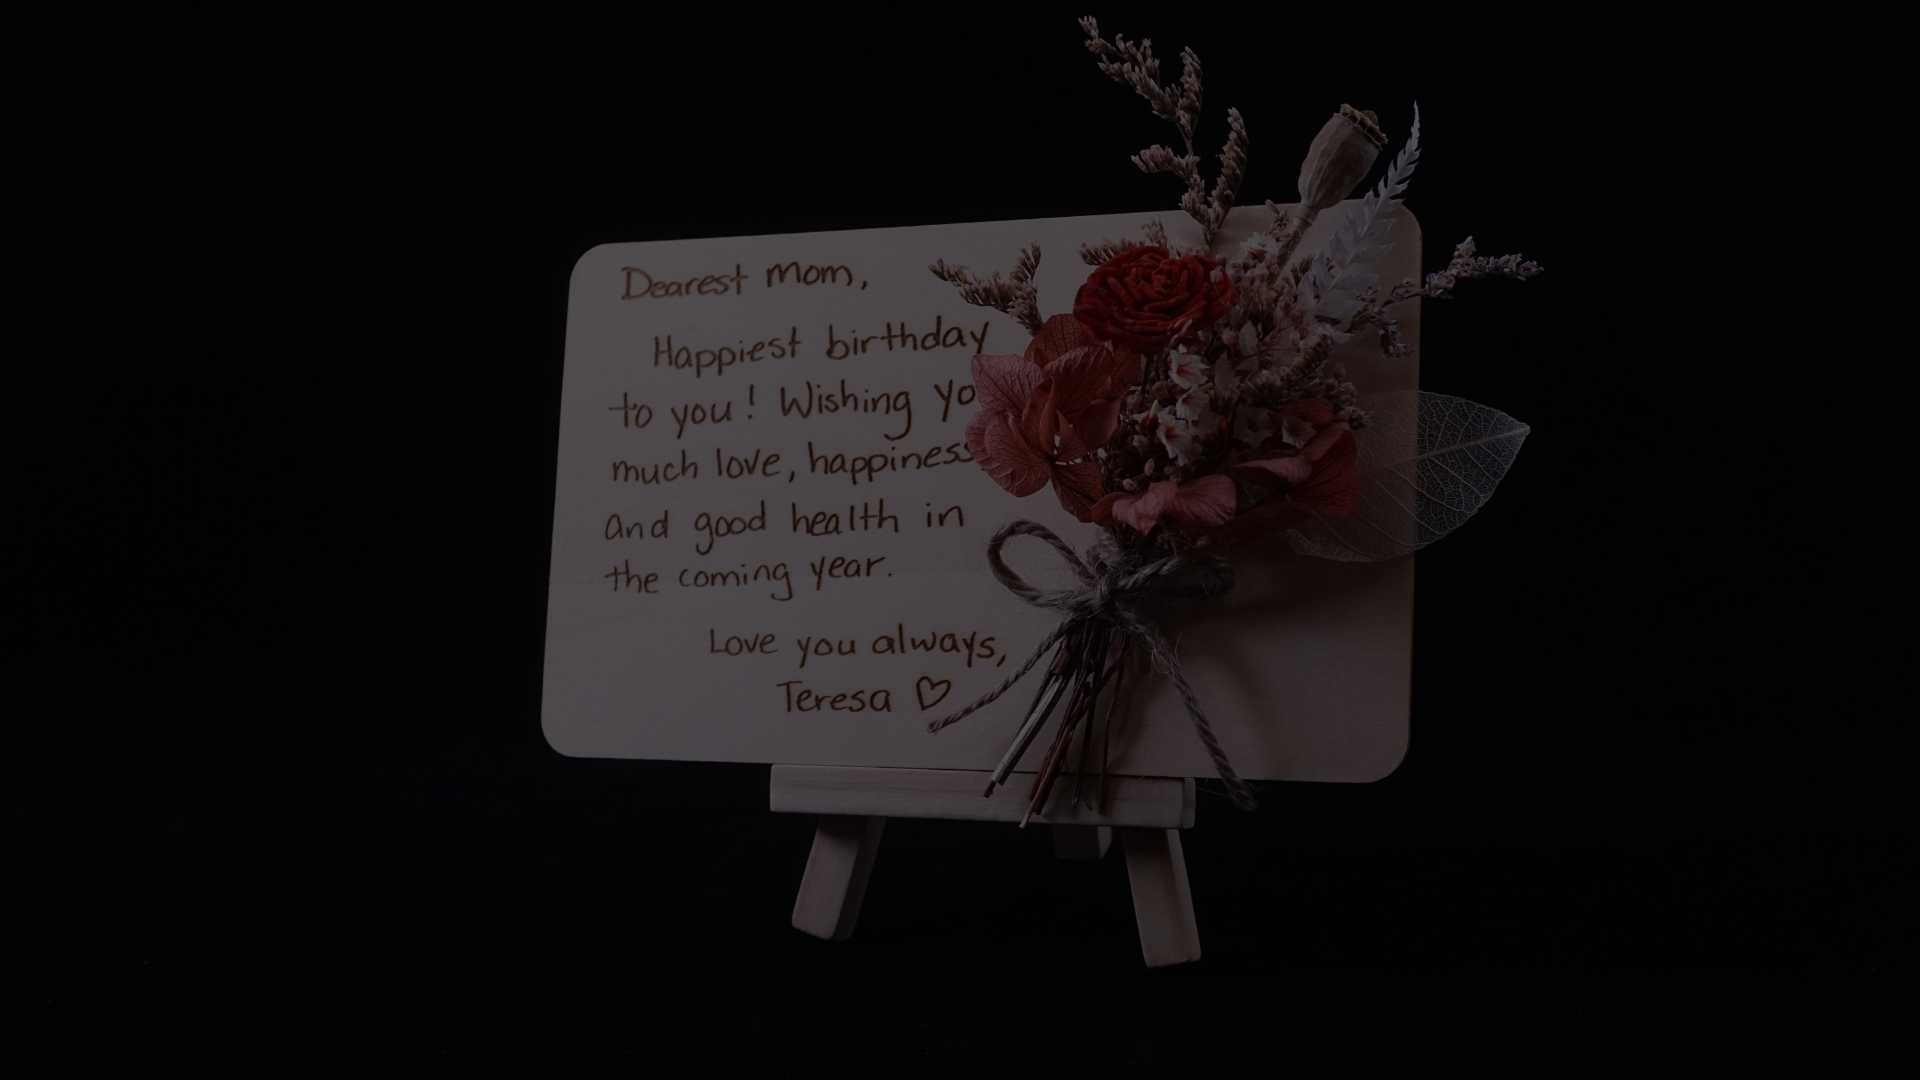 Dearest Mom,
Happiest birthday
to you! Wishing yo
much love, happiness
and good health in
the coming year.
Love you always,
Teresa ♡